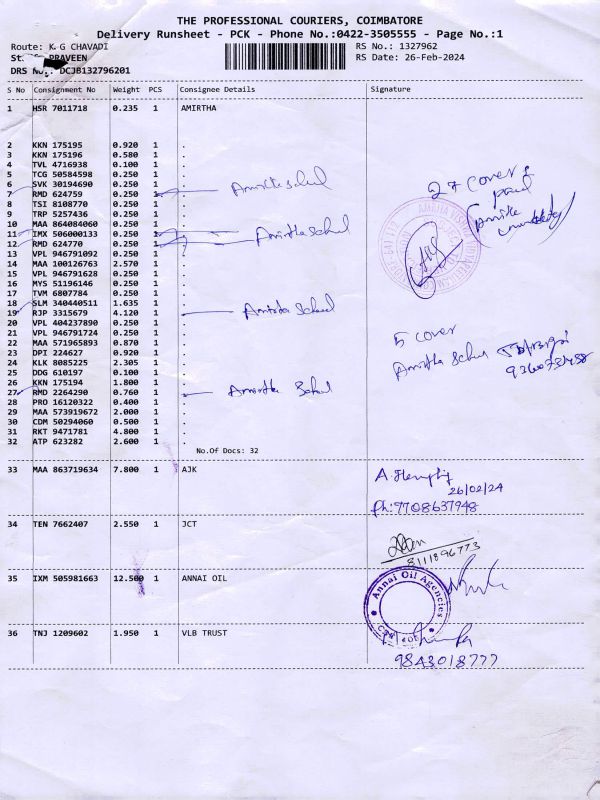 THE PROFESSIONAL COURIERS, COIMBATORE
Delivery Runsheet - PCK - Phone No.:0422-3505555 - Page No.:1
Route: K G CHAVADI RS No.: 1327962
PRAVEEN RS Date: 26-Feb-2024
DRS No.: DCJB132796201
S No Consignment No Weight PCS Consignee Details Signature
1 HSR 7011718 0.235 1 AMIRTHA
2 KKN 175195 0.920 1 .
3 KKN 175196 0.580 1 .
4 TVL 4716938 0.100 1 .
5 TCG 50584598 0.250 1 .
6 SVK 30194690 0.250 1 .
7 RMD 624759 0.250 1 . Amirtha school
8 TSI 8108770 0.250 1 .
9 TRP 5257436 0.250 1 .
10 MAA 864084060 0.250 1 .
11 IMX 506000133 0.250 1 . Amirtha School
12 RMD 624770 0.250 1 .
13 VPL 946791092 0.250 1 .
14 MAA 100126763 2.570 1 .
15 VPL 946791628 0.250 1 .
16 MYS 51196146 0.250 1 .
17 TVM 6807784 0.250 1 .
18 SLM 340440511 1.635 1 .
19 RJP 3315679 4.120 1 . Amirtha School
20 VPL 404237890 0.250 1 .
21 VPL 946791724 0.250 1 .
22 MAA 571965893 0.870 1 .
23 DPI 224627 0.920 1 .
24 KLK 8085225 2.305 1 .
25 DDG 610197 0.100 1 .
26 KKN 175194 1.800 1 .
27 RMD 2264290 0.760 1 . Amirtha School
28 PRO 16120322 0.400 1 .
29 MAA 573919672 2.000 1 .
30 CDM 50294060 0.500 1 .
31 RKT 9471781 4.800 1 .
32 ATP 623282 2.600 1 .
No.Of Docs: 32
27 cover &
5 cover
Amirtha School
33 MAA 863719634 7.800 1 AJK
26/02/24
Ph: 7708637948
34 TEN 7662407 2.550 1 JCT
8111896773
35 IXM 505981663 12.500 1 ANNAI OIL
Annai Oil Agencies
36 TNJ 1209602 1.950 1 VLB TRUST
9843018777